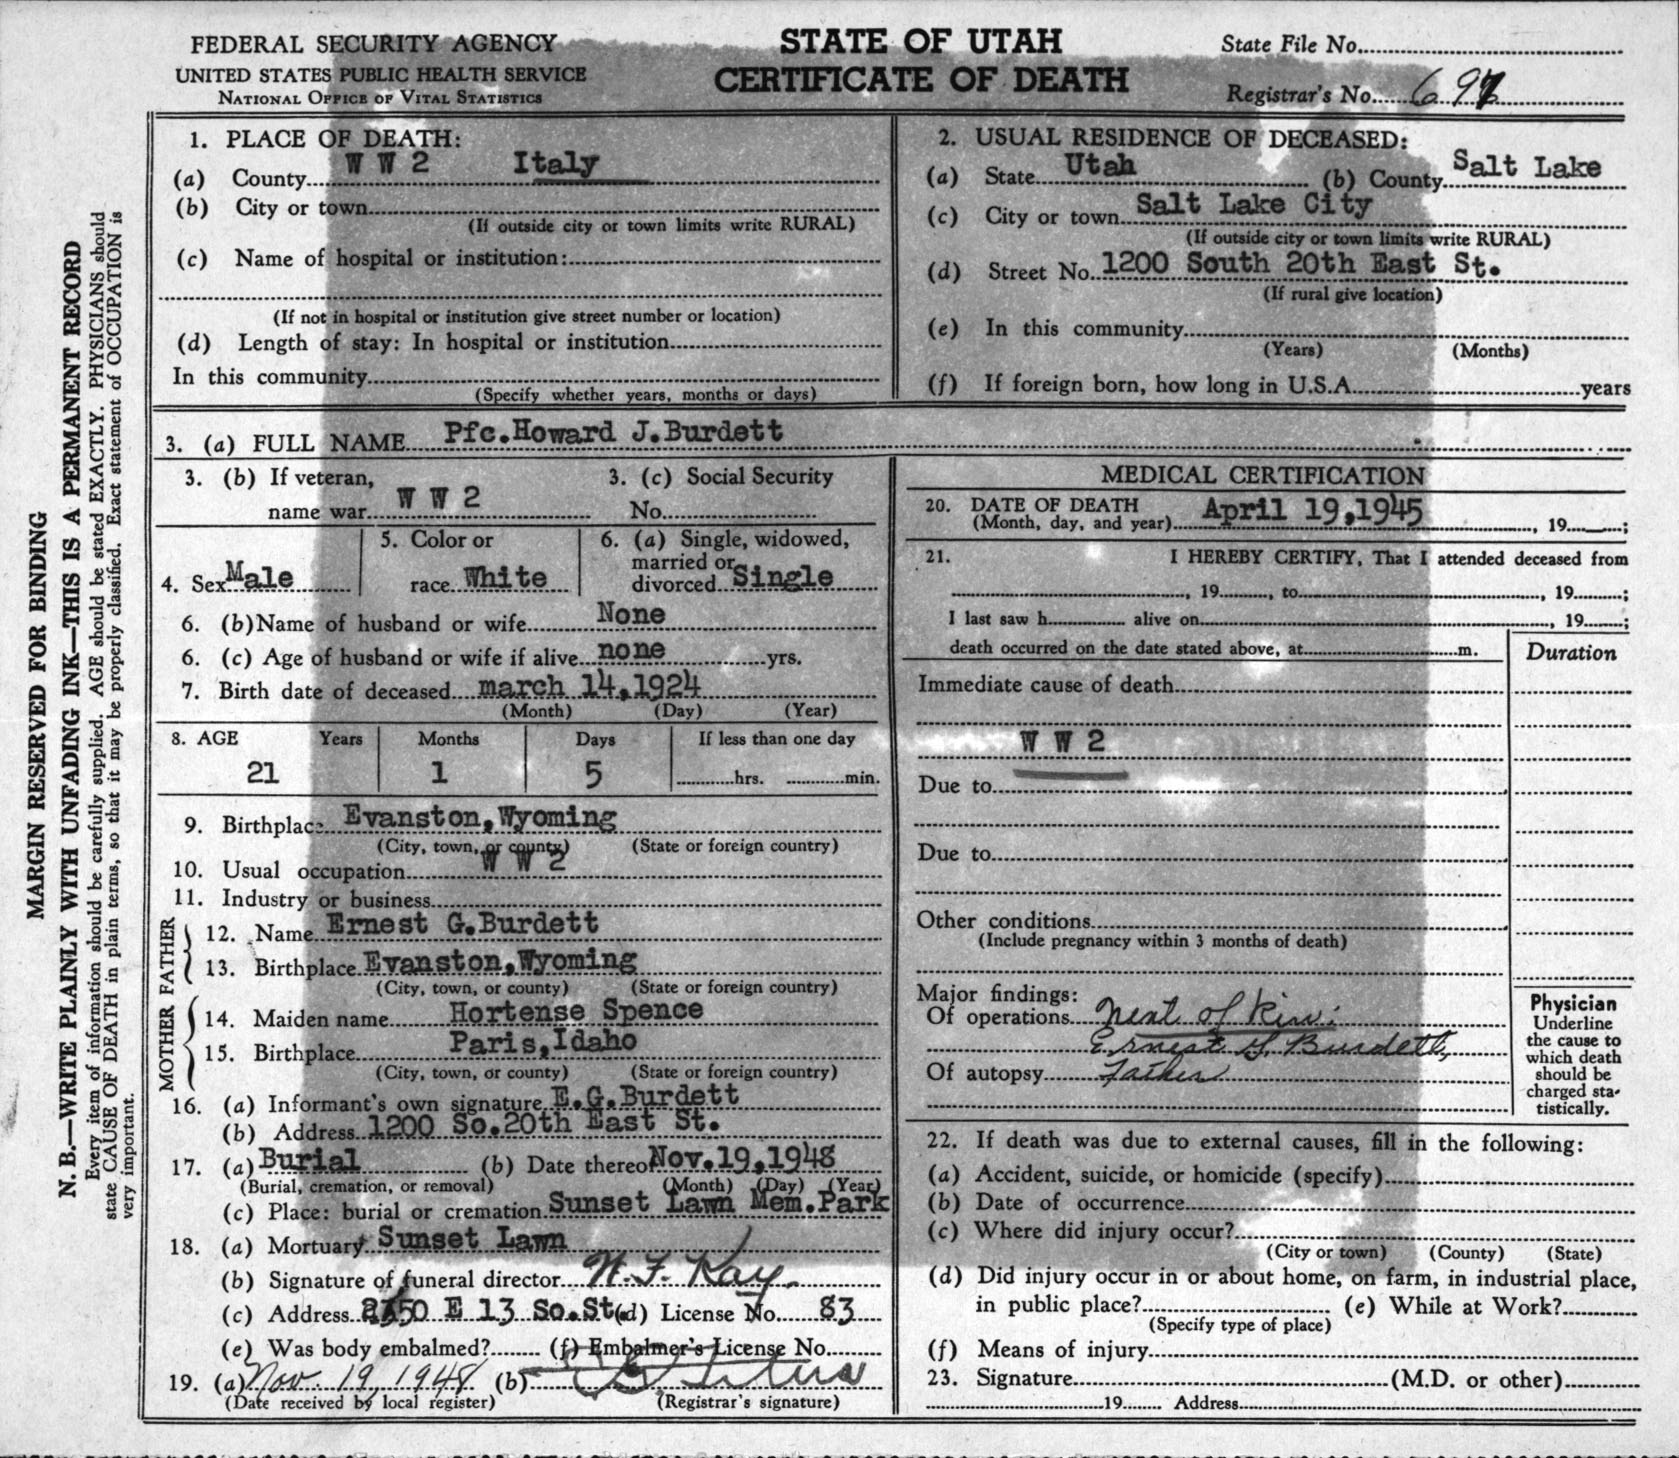 FEDERAL SECURITY AGENCY
UNITED STATES PUBLIC HEALTH SERVICE
NATIONAL OFFICE OF VITAL STATISTICS
STATE OF UTAH
CERTIFICATE OF DEATH
State File No.
Registrar's No. 697
MARGIN RESERVED FOR BINDING
N. B.—WRITE PLAINLY WITH UNFADING INK—THIS IS A PERMANENT RECORD
Every item of information should be carefully supplied. AGE should be stated EXACTLY. PHYSICIANS should
state CAUSE OF DEATH in plain terms, so that it may be properly classified. Exact statement of OCCUPATION is
very important.
1. PLACE OF DEATH:
(a) County W W 2 Italy
(b) City or town
(If outside city or town limits write RURAL)
(c) Name of hospital or institution:
(If not in hospital or institution give street number or location)
(d) Length of stay: In hospital or institution
In this community
(Specify whether years, months or days)
2. USUAL RESIDENCE OF DECEASED:
(a) State Utah (b) County Salt Lake
(c) City or town Salt Lake City
(If outside city or town limits write RURAL)
(d) Street No. 1200 South 20th East St.
(If rural give location)
(e) In this community
(Years) (Months)
(f) If foreign born, how long in U.S.A. years
3. (a) FULL NAME Pfc.Howard J.Burdett
3. (b) If veteran,
name war W W 2
3. (c) Social Security
No.
4. Sex Male
5. Color or
race White
6. (a) Single, widowed,
married or
divorced Single
6. (b) Name of husband or wife None
6. (c) Age of husband or wife if alive none yrs.
7. Birth date of deceased march 14,1924
(Month) (Day) (Year)
8. AGE Years Months Days If less than one day
21 1 5 hrs. min.
9. Birthplace Evanston,Wyoming
(City, town, or county) (State or foreign country)
10. Usual occupation W W 2
11. Industry or business
FATHER
12. Name Ernest G.Burdett
13. Birthplace Evanston,Wyoming
(City, town, or county) (State or foreign country)
MOTHER
14. Maiden name Hortense Spence
15. Birthplace Paris,Idaho
(City, town, or county) (State or foreign country)
16. (a) Informant's own signature E.G.Burdett
(b) Address 1200 So.20th East St.
17. (a) Burial (b) Date thereof Nov.19,1948
(Burial, cremation, or removal) (Month) (Day) (Year)
(c) Place: burial or cremation Sunset Lawn Mem.Park
18. (a) Mortuary Sunset Lawn
(b) Signature of funeral director N. F. Kay.
(c) Address 2350 E 13 So.St. (d) License No. 83
(e) Was body embalmed? (f) Embalmer's License No.
19. (a) Nov. 19, 1948 (b)
(Date received by local register) (Registrar's signature)
MEDICAL CERTIFICATION
20. DATE OF DEATH
(Month, day, and year) April 19,1945, 19 ;
21. I HEREBY CERTIFY, That I attended deceased from
, 19 , to , 19 ;
I last saw h alive on , 19 ;
death occurred on the date stated above, at m.
Duration
Immediate cause of death
W W 2
Due to
Due to
Other conditions
(Include pregnancy within 3 months of death)
Major findings:
Of operations Next of Kin:
Ernest G. Burdett,
Of autopsy Father
Physician
Underline
the cause to
which death
should be
charged sta-
tistically.
22. If death was due to external causes, fill in the following:
(a) Accident, suicide, or homicide (specify)
(b) Date of occurrence
(c) Where did injury occur?
(City or town) (County) (State)
(d) Did injury occur in or about home, on farm, in industrial place,
in public place? (e) While at Work?
(Specify type of place)
(f) Means of injury
23. Signature (M.D. or other)
19 Address